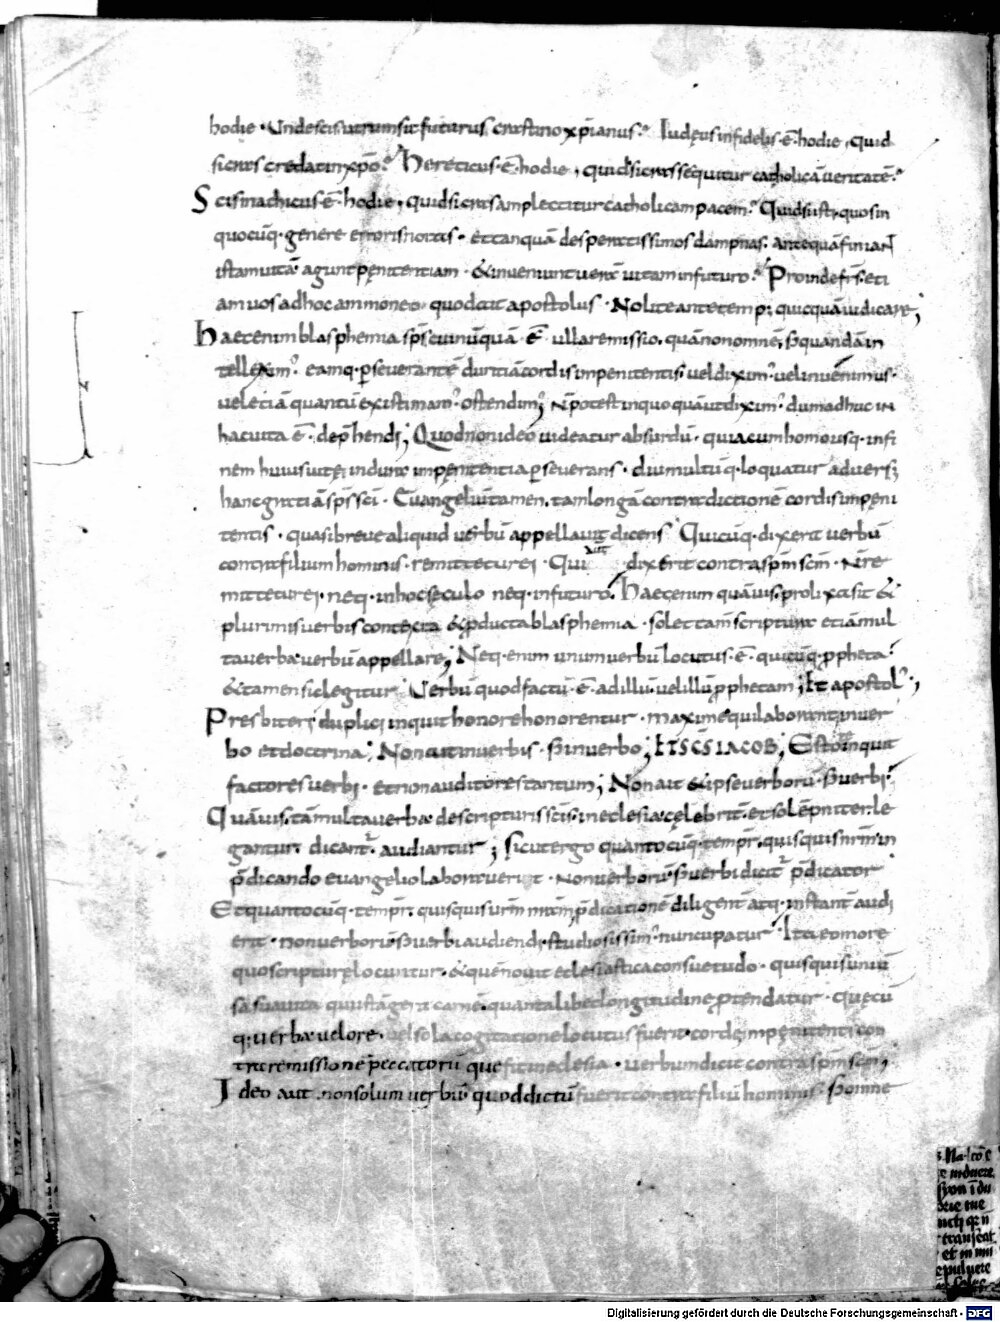 hodie · Unde scis utrum sit futurus crastino xp̄ianus? Iudęus infidelis · ē · hodie, quid
si cras credat in xp̄o? Hereticus · ē · hodie, quid si cras sequitur catholicā ueritatē?
Scismaticus · ē · hodie, quid si cras amplectitur catholicam pacem? Quid si isti, quos in
quocūq· genere erroris notas · et tanquā desperatissimos dampnas · antequā finiant
istam uitā agunt pęnitentiam · & inueniunt uerā uitam in futuro? Proinde fr̄s · eti
am uos ad hoc ammoneo · quod ait apostolus · Nolite ante temp; quicquā iudicare;
Haec enim blasphemia sp̄s cui nūquā · ē · ulla remissio · quā non omnē, s; quandā in
tellexim; eamq· p̱seuerantē duritiā cordis inpenitentis · uel dixim; uel inuenimus ·
uel etiā quantū existimam; ostendim; n̄ potest in quoquā ut dixim; dum adhuc in
hac uita · ē · dep̄hendi; Quod non ideo uideatur absurdū · quia cum homo usq· in fi
nem huius uitę, in dura inpęnitentia p̱seuerans · diu multūq· loquatur aduers;
hanc gratiā sp̄s sc̄i · Euangeliū tamen, tam longā contradictionē cordis inpęni
tentis · quasi breue aliquid uerbū appellauit dicens · Quicūq· dixerit uerbū
contra filium hominis · remittetur ei · Qui aut dixerit contra sp̄m sc̄m · n̄ re
mittetur ei · neq· in hoc sęculo neq· in futuro. Haec enim quāuis · prolixa sit &
plurimis uerbis contexta & p̱ducta blasphemia · solet tam̄ scriptura etiā mul
ta uerba uerbū appellare; Neq· enim unum uerbū locutus · ē · quicūq· p̱pheta ·
& tamen sic legitur Uerbū quod factū · ē · ad illū · uel illū p̱phetam; Et apostol;
Presbiteri duplici inquit honore honorentur · maxime qui laborant in uer
bo et doctrina; Non ait in uerbis · s; in uerbo; ET SC̄S IACOB; Estote inquit
factores uerbi · et non auditores tantum; Non ait & ipse uerborū · s; uerbi ·
Quāuis · tā multa uerba de scripturis sc̄is · in eclesia cęlebrit̄ · et solēpniter · le
gantur · dicant̄ · audiantur; Sicut ergo quantocūq· tempr̄ · quisquis nr̄m · in
p̄dicando euangelio laborauerit · non uerborū s; uerbi dicit̄ p̄dicator
Et quantocūq· tempr̄ · quisquis ur̄m nr̄am p̄dicationē diligent̄ atq· instant̄ audi
erit · non uerborū s; uerbi audiendi · studiosissim; nuncupatur · Ita eo more
quo scripturę locuntur · & quē nouit eclesiastica consuetudo · quisquis uniū
sā suā uitā quā istā gerit carnē · quantalibet longitudine p̱tendatur · quęcū
q; uerba uel ore · uel sola cogitatione locutus fuerit · corde inpęnitenti con
tra remissionē peccatorū que fit in eclesia · uerbum dicit contra sp̄m sc̄m;
Ideo aut non solum uerbū quod dictū fuerit contra filiū hominis · s; omne